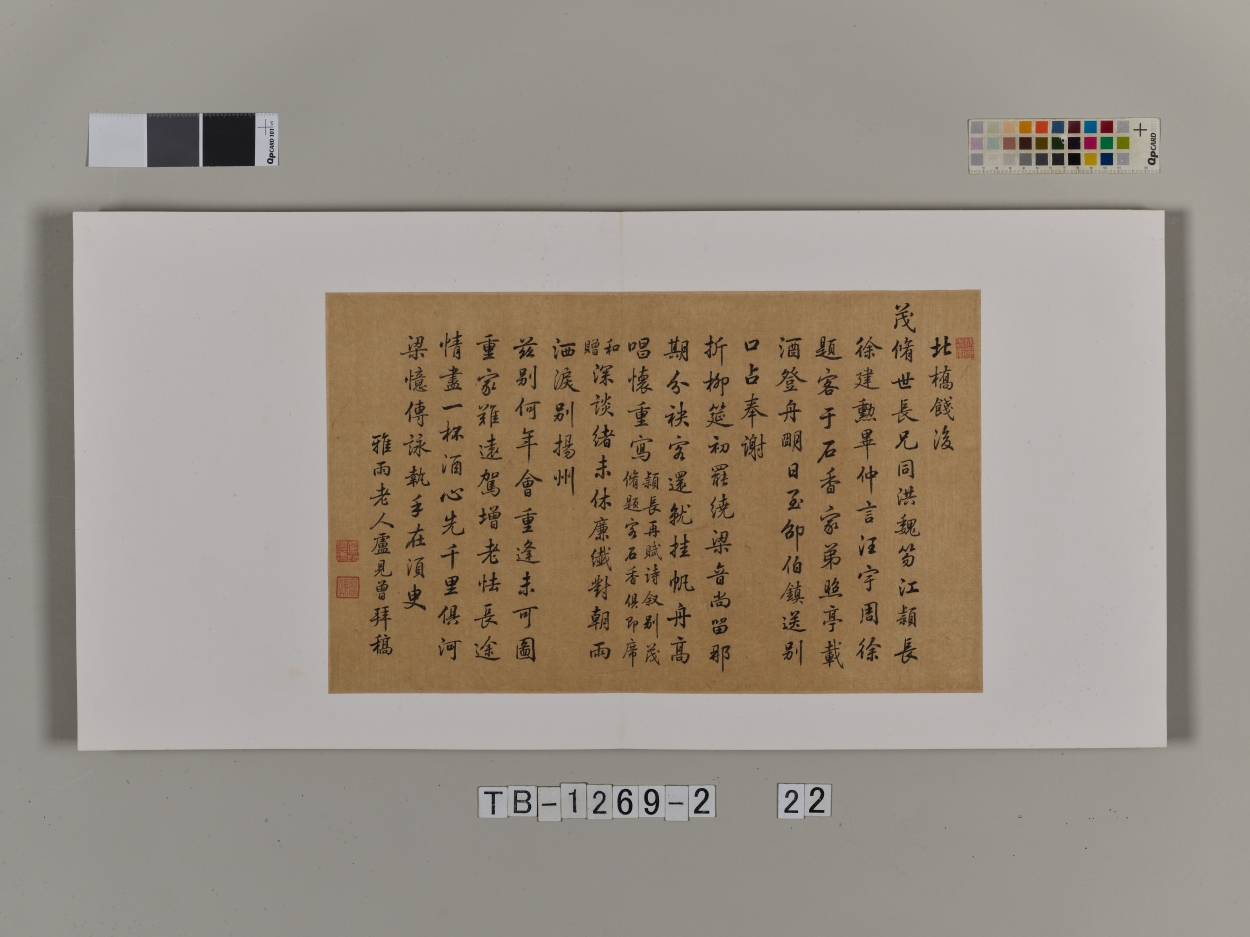 北橋餞後
茂脩世長兄同洪魏笏江穎長
徐建勳畢仲言汪宇周徐
題客于石香家弟照亭載
酒登舟明日至邵伯鎮送別
口占奉謝
折柳筵初罷繞梁音尚留那
期分袂客還就挂帆舟高
唱懷重寫穎長再賦詩叙別茂
脩題客石香俱即席
和
贈深談緒未休廉纖對朝雨
洒淚別揚州
茲別何年會重逢未可圖
重家難遠駕增老怯長途
情盡一杯酒心先千里俱河
梁憶傳詠執手在須臾
雅雨老人盧見曾拜稿
QPCARD 101
QPCARD
TB-1269-2 22